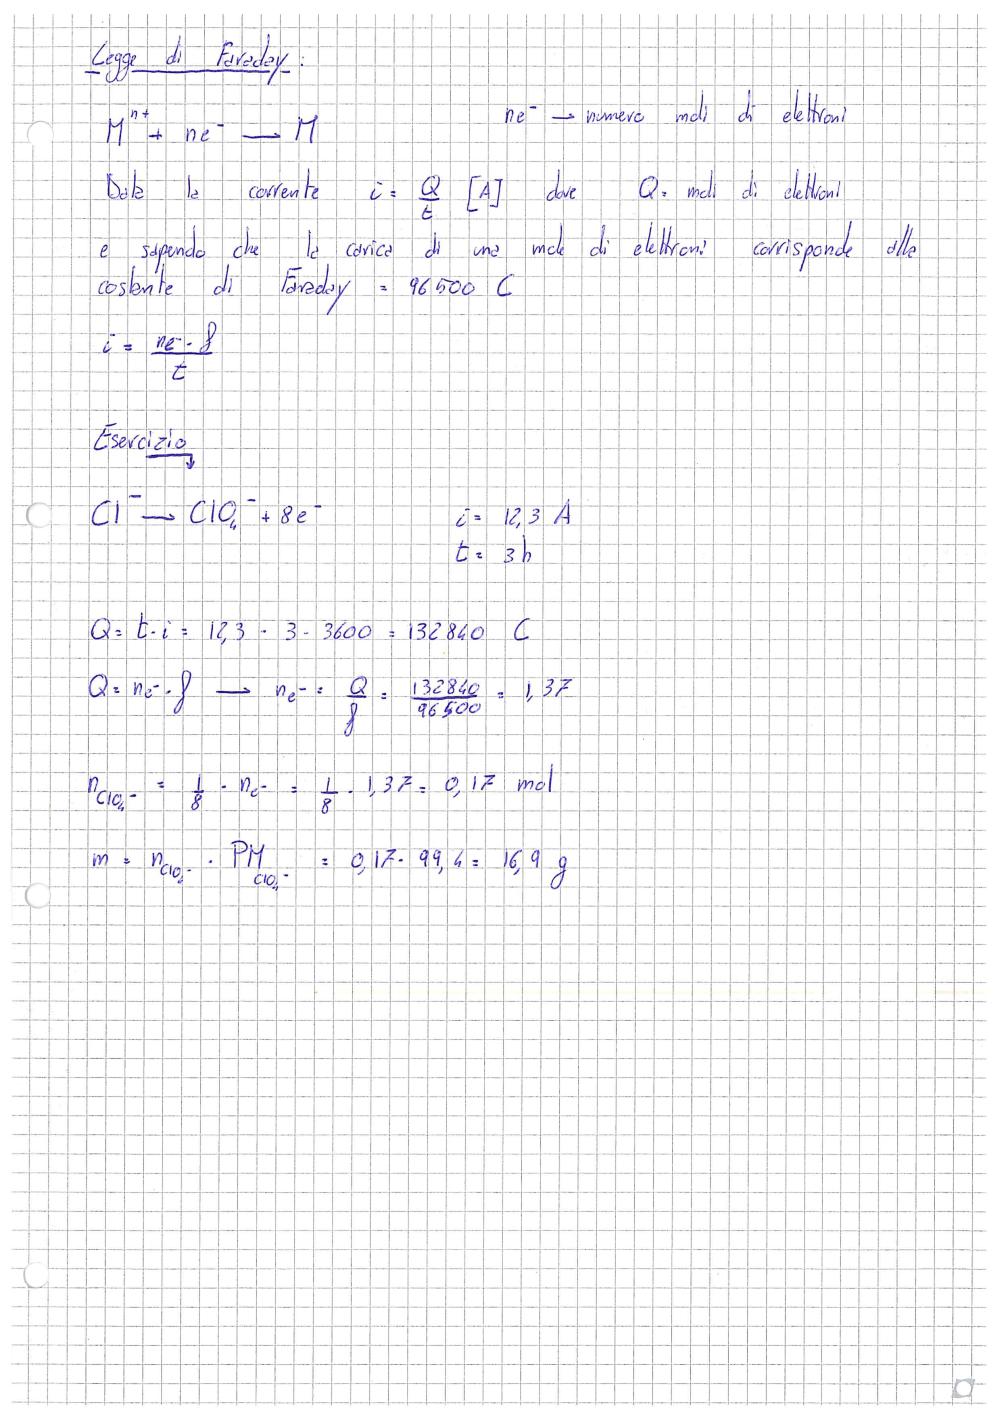 Legge di Faraday:
M^n+ + ne^- → M
ne^- → numero moli di elettroni
Data la corrente i = Q/t [A] dove Q = moli di elettroni
e sapendo che la carica di una mole di elettroni corrisponde alla
costante di Faraday = 96500 C
i = ne^- · f / t
Esercizio
Cl^- → ClO4^- + 8e^-
i = 12,3 A
t = 3h
Q = t · i = 12,3 · 3 · 3600 = 132840 C
Q = ne^- · f → ne^- = Q/f = 132840/96500 = 1,37
nClO4^- = 1/8 · ne^- = 1/8 · 1,37 = 0,17 mol
m = nClO4^- · PMClO4^- = 0,17 · 99,4 = 16,9 g